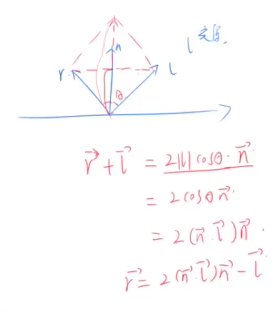 n
l
r
l
θ
r⃗ + l⃗ = 2|l|cosθ · n⃗
= 2cosθ n⃗
= 2(n⃗·l⃗)n⃗
r⃗ = 2(n⃗·l⃗)n⃗ - l⃗